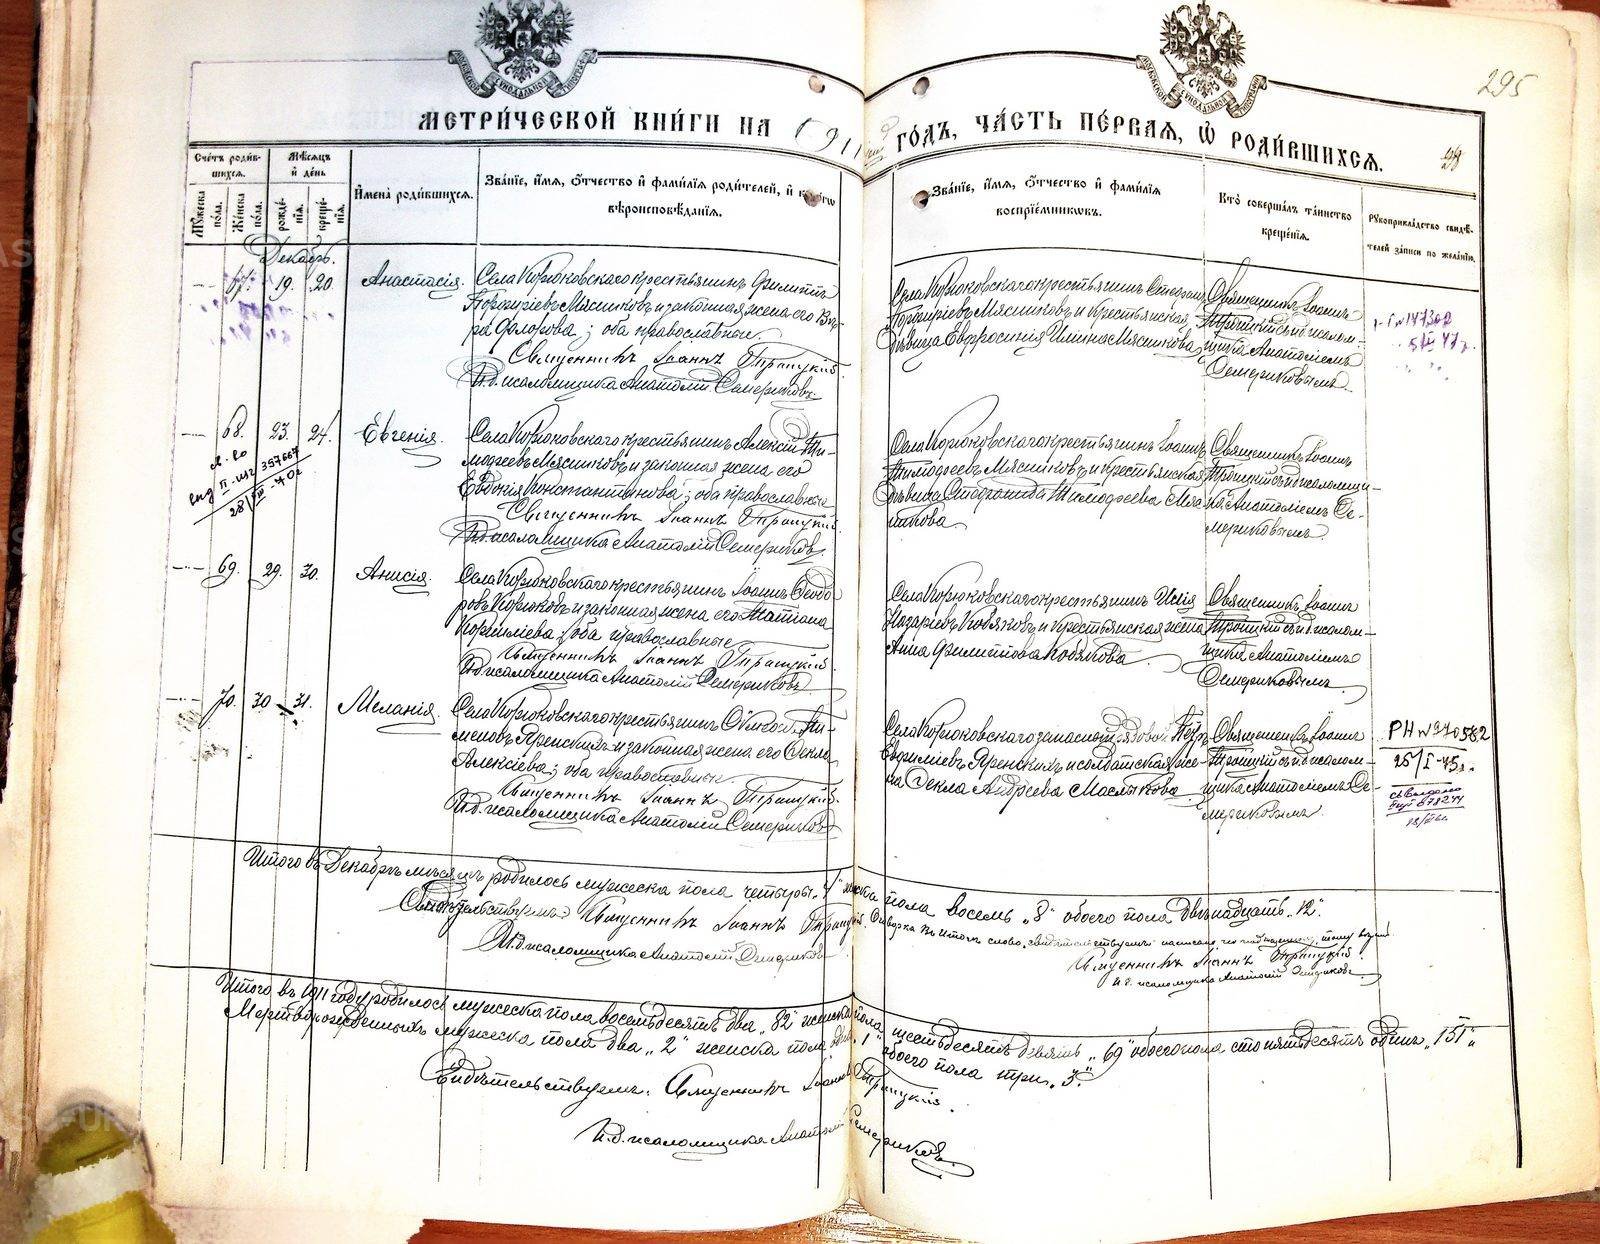 295
МЕТРИ́ЧЕСКОЙ КНИ́ГИ НА 1911 ГО́ДЪ, ЧА́СТЬ ПЕ́РВАЯ, Ѡ РОДИ́ВШИХСЯ.
Сче́тъ роди́в-
шихся.
Мѣ́сяцъ
и҆ де́нь
Му́жеска
по́ла.
Же́нска
по́ла.
рожде́-
нїя.
креще́-
нїя.
И҆мена̀ роди́вшихся.
Зва́нїе, и҆́мя, ѻ҆́тчество и҆ фами́лїя роди́телей, и҆
вѣроисповѣ́данїя.
Зва́нїе, и҆́мя, ѻ҆́тчество и҆ фами́лїя
воспрїе́мниковъ.
Кто̀ соверша́лъ та́инство
креще́нїя.
Рукоприкла́дство свидѣ́-
телей за́писи по жела́нїю.
Декабрь.
67. 19. 20. Анастасія.
Села Корюковскаго крестьянинъ Филиппъ
Порфиріевъ Мясниковъ и законная жена его Вѣ-
ра Флорова; оба православные.
Священникъ Іоаннъ Троицкій.
И.д. псаломщика Анатолій Семериковъ.
Села Корюковскаго крестьянинъ Стефанъ
Порфиріевъ Мясниковъ и крестьянская
дѣвица Евфросинія Илиина Мясникова
Священникъ Іоаннъ
Троицкій съ и.д. псалом-
щика Анатоліемъ
Семериковымъ.
68. 23. 24. Евгенія.
Села Корюковскаго крестьянинъ Алексій Ти-
моѳеевъ Мясниковъ и законная жена его
Евдокія Константинова; оба православные
Священникъ Іоаннъ Троицкій.
И.д. псаломщика Анатолій Семериковъ.
Села Корюковскаго крестьянинъ Іоаннъ
Тимоѳеевъ Мясниковъ и крестьянская
дѣвица Стефанида Тимоѳеева Мяс-
никова
Священникъ Іоаннъ
Троицкій съ и.д. псаломщи-
ка Анатоліемъ Се-
мериковымъ.
357667
28/VIII-70г
69. 29. 30. Анисія.
Села Корюковскаго крестьянинъ Іоаннъ Ѳеодо-
ровъ Корюковъ и законная жена его Татіана
Корниліева; оба православные
Священникъ Іоаннъ Троицкій.
И.д. псаломщика Анатолій Семериковъ
Села Корюковскаго крестьянинъ Исаія
Кобяковъ и крестьянская жена
Анна Филиппова Кобякова.
Священникъ Іоаннъ
Троицкій съ и.д. псалом-
щика Анатоліемъ
Семериковымъ.
70. 30. 31. Меланія.
Села Корюковскаго крестьянинъ Ти-
меновъ Яренскихъ и законная жена его Ѳекла
Алексіева; оба православные.
Священникъ Іоаннъ Троицкій.
И.д. псаломщика Анатолій Семериковъ
Села Корюковскаго запасной рядовой Петръ
Евфиміевъ Яренскихъ и солдатская же-
на Ѳекла Андреева Маслыкова.
Священникъ Іоаннъ
Троицкій съ и.д. псалом-
щика Анатоліемъ Се-
мериковымъ.
РН №970582
25/I-75г.
Итого въ Декабрѣ мѣсяцѣ родилось мужеска пола четыре „4" женска пола восемь „8" обоего пола двѣнадцать „12".
Свидѣтельствуемъ Священникъ Іоаннъ Троицкій.
И.д. псаломщика Анатолій Семериковъ
Священникъ Іоаннъ Троицкій.
И.д. псаломщика Анатолій Семериковъ.
Итого въ 1911 году родилось мужеска пола восемьдесятъ два „82" женска пола шестьдесятъ девять „69" обоего пола сто пятьдесятъ одинъ „151".
Мертворожденныхъ мужеска пола два „2" женска пола одна „1" обоего пола три „3".
Свидѣтельствуемъ: Священникъ Іоаннъ Троицкій.
И.д. псаломщика Анатолій Семериковъ.